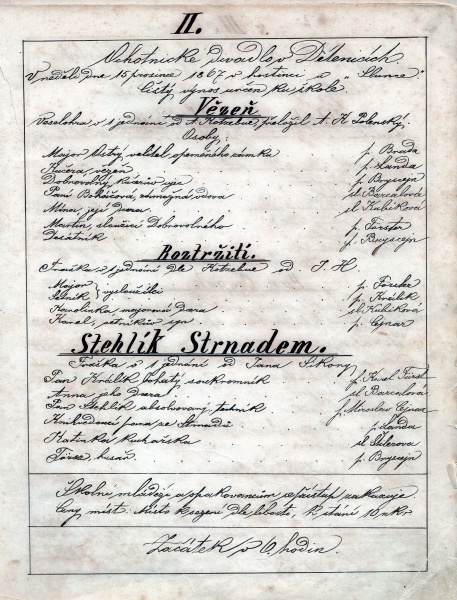 II.
Ochotnické divadlo v Dětenicích.
V neděli dne 15 prosince 1867 v hostinci u „Slunce"
Čistý výnos určen ku škole.
Vězeň
Veselohra v 1 jednání od A. Kotzebue, přeložil A. K Polenský.
Osoby:
Major Ostrý velitel opevněného zámku p. Brada
Kučera, vězeň p. Landa
Dobrovolný, Kučerův p. Bryscejn
Paní Boháčová, zámožná vdova sl Barcalová
Mína, její dcera. sl Kubíčková
Martin, sloužící Dobrovolného p. Förster
Desátník p. Bryscejn
Roztržití.
Fraška v 1 jednání dle Kotzebue od J. H.
Major p. Förster
Setník } vysloužilci p. Králík
Karolinka majorova dcera sl. Kubíčková
Karel, setníkův syn p. Cejnar
Stehlík Strnadem.
Fraška v 1 jednání od Jana
Pan Králík bohatý soukromník p. Karel
Anna jeho dcera sl Barcalová
Pan Stehlík absolvovaný technik p. Miroslav Cejnar
p. Landa
Kuchařka sl
husar. p. Bryscejn
Školní mládeži a opakovancům se přístup zakazuje.
Ceny míst: Místo k sezení dle libosti, k stání 10 nkr
Začátek v 6. hodin.